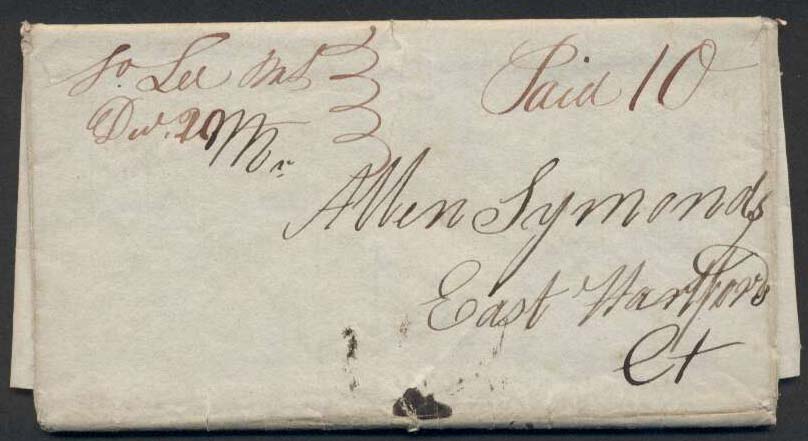 So. Lee Ms
Dec. 20
Paid 10
Mr
Allen Symonds
East Hartford
Ct